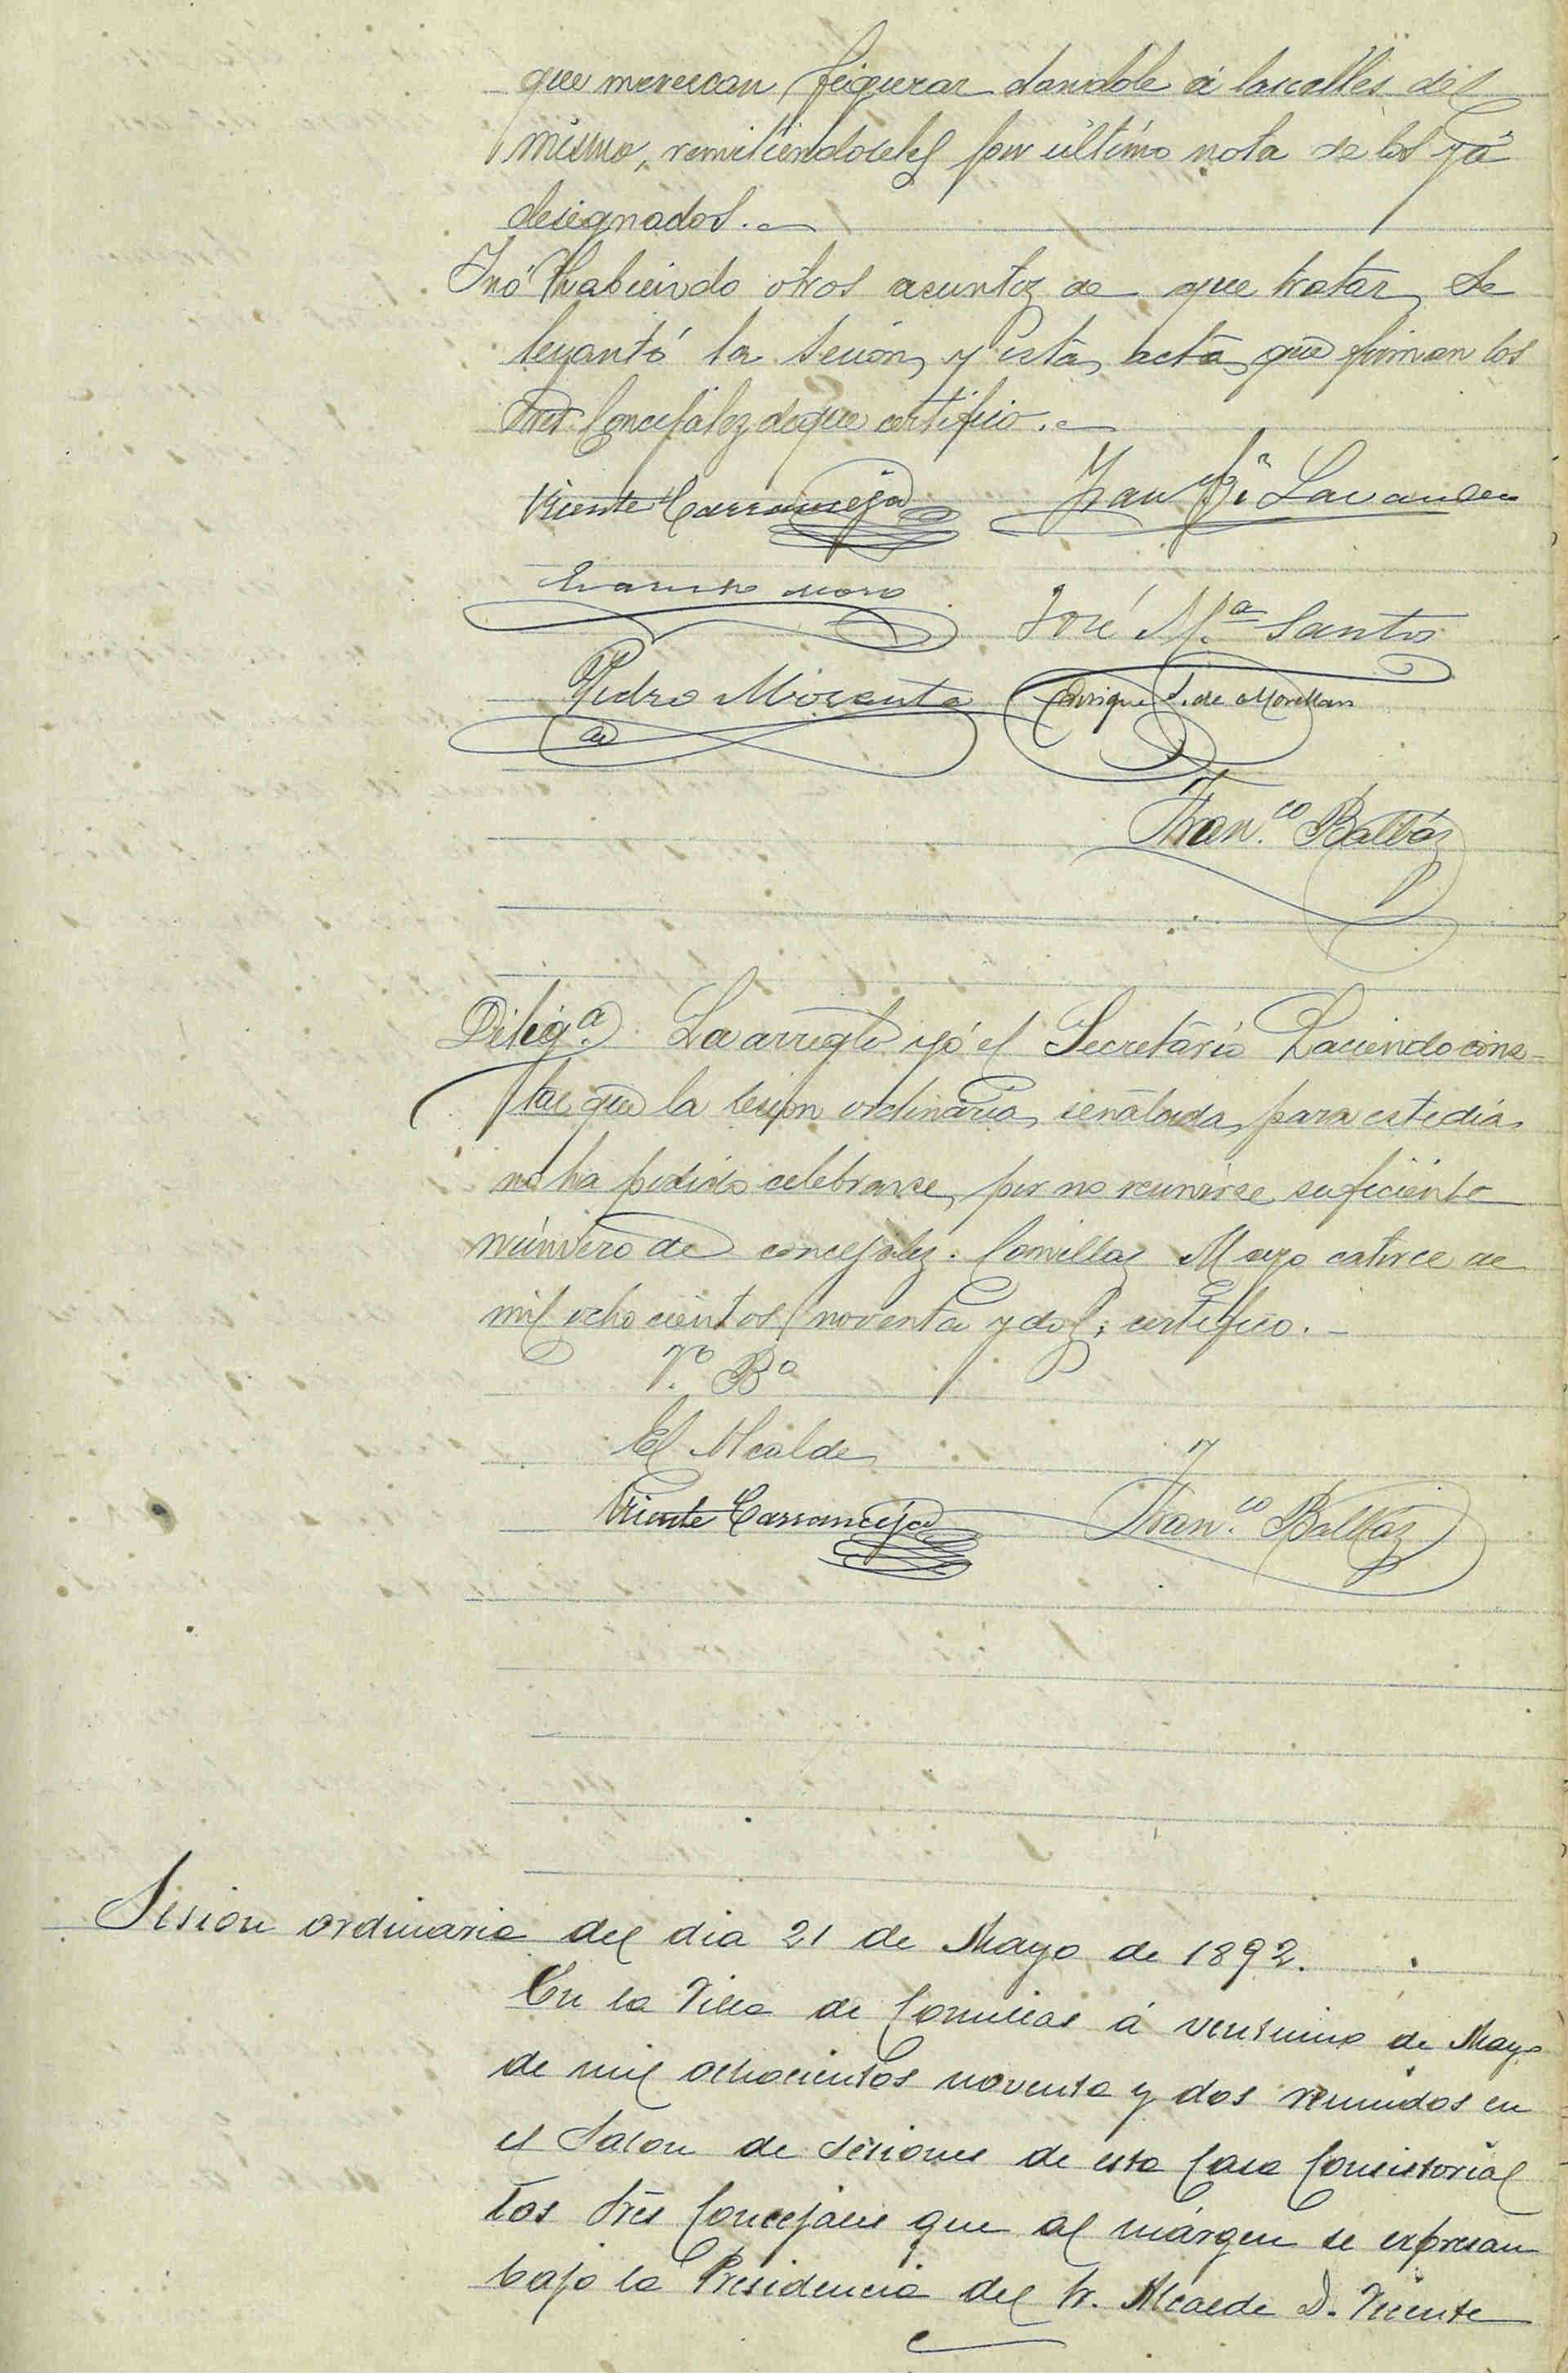 que merezcan figurar dandole á las calles del
mismo, remitiendoseles por último nota de los yá
designados.-
Y nó habiendo otros asuntos de que tratar, se
levantó la sesion, y esta acta, que firman los
Sres. Concejalez de que certifico.-
Vicente Carranceja
Evaristo Moro
José M.ª Santos
Pedro
Enrique
Fran.co Balbáz
Dilig.ª La arreglo yó el Secretario haciendo cons-
tar que la sesion ordinaria, señalada, para este dia,
no ha podido celebrarse, por no reunirse suficiente
número de concejalez. Comillas Mayo catorce de
mil ochocientos noventa y dos; certifico.-
V.º B.º
El Alcalde
Vicente Carranceja Fran.co Balbáz
Sesion ordinaria del dia 21 de Mayo de 1892.
En la Villa de Comillas á ventiuno de Mayo
de mil ochocientos noventa y dos reunidos en
el Salon de sesiones de esta Casa Consistorial
los Sres Concejales que al márgen se expresan
bajo la Presidencia del Sr. Alcalde D. Vicente